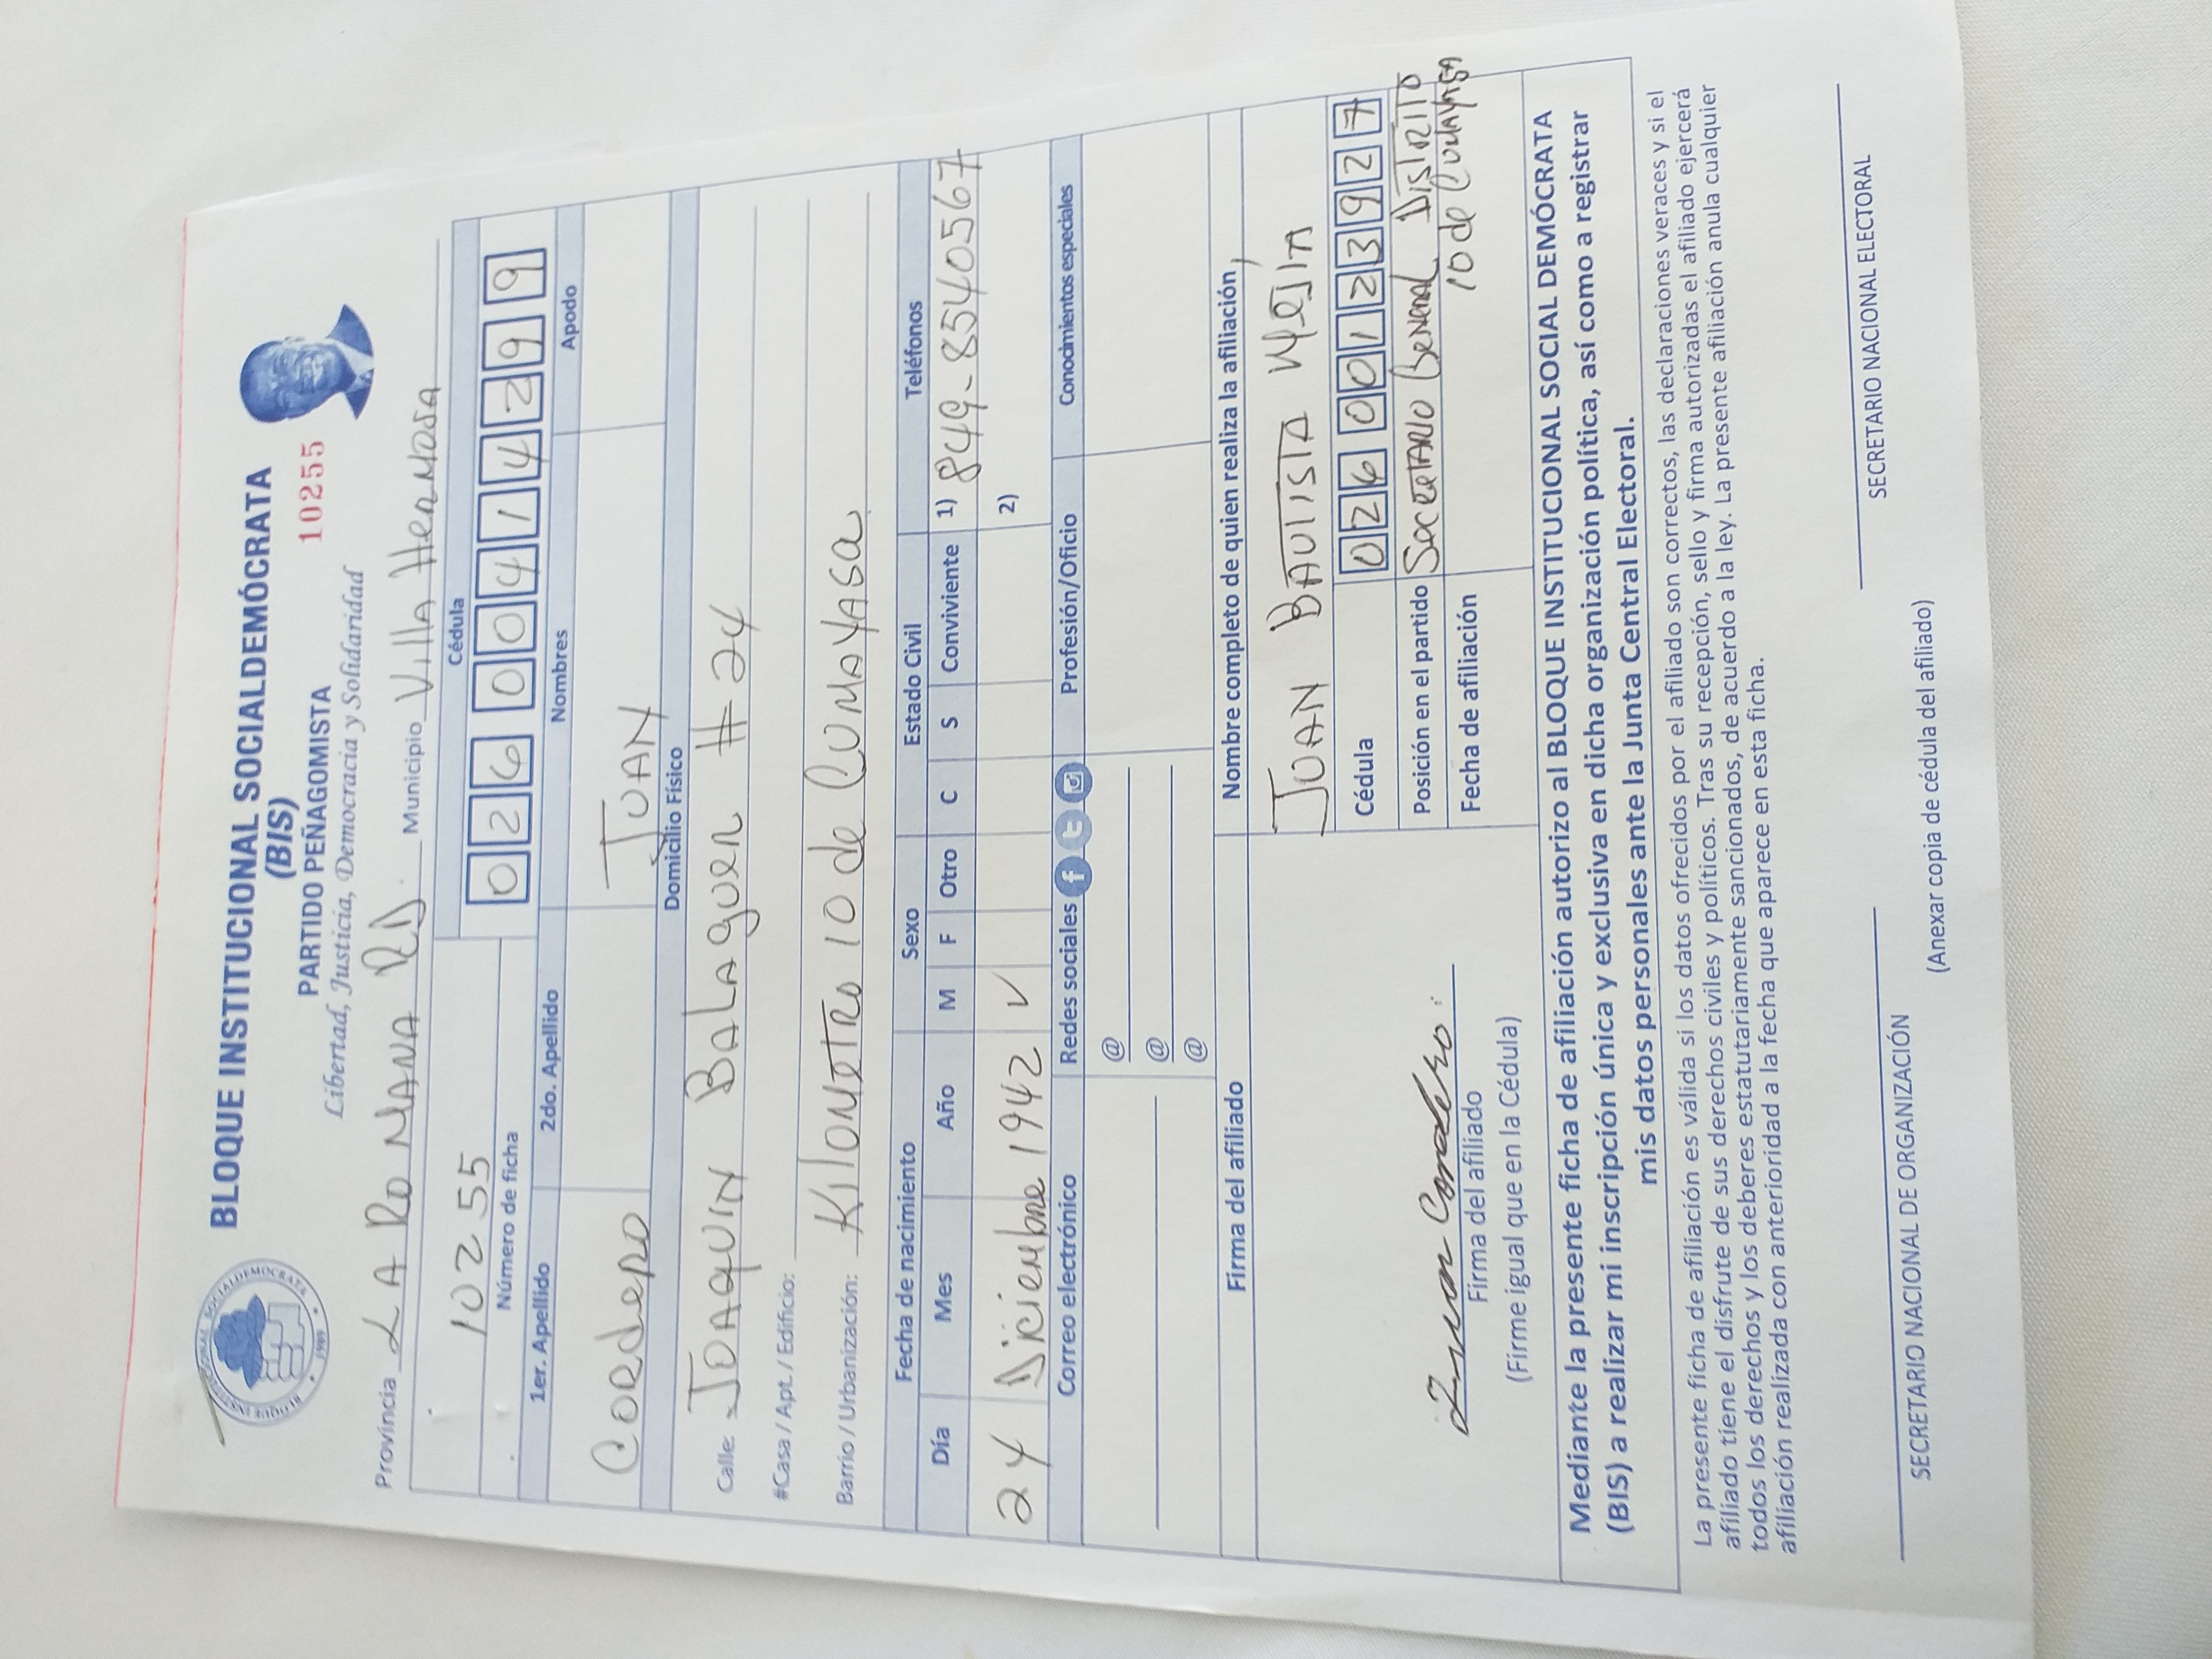 BLOQUE INSTITUCIONAL SOCIALDEMÓCRATA
(BIS)
PARTIDO PEÑAGOMISTA
10255
Libertad, Justicia, Democracia y Solidaridad
Provincia LA ROMANA RD. Municipio Villa Hermosa
10255
Número de ficha
Cédula
026 0041429 9
1er. Apellido 2do. Apellido Nombres Apodo
Cordero JUAN
Domicilio Físico
Calle: JOAQUIN BALAGUER # 24
#Casa / Apt. / Edificio:
Barrio / Urbanización: KILOMETRO 10 de CUMAYASA
Fecha de nacimiento Sexo Estado Civil Teléfonos
Día Mes Año M F Otro C S Conviviente 1) 849-8540567
24 Diciembre 1942 ✓ 2)
Correo electrónico Redes sociales Profesión/Oficio Conocimientos especiales
@
@
@
Firma del afiliado Nombre completo de quien realiza la afiliación
JUAN BAUTISTA MEJIA
Cédula 026 0012392 7
Posición en el partido Secretario General Distrito
10 de Cumayasa
Fecha de afiliación
Juan Cordero
Firma del afiliado
(Firme igual que en la Cédula)
Mediante la presente ficha de afiliación autorizo al BLOQUE INSTITUCIONAL SOCIAL DEMÓCRATA
(BIS) a realizar mi inscripción única y exclusiva en dicha organización política, así como a registrar
mis datos personales ante la Junta Central Electoral.
La presente ficha de afiliación es válida si los datos ofrecidos por el afiliado son correctos, las declaraciones veraces y si el
afiliado tiene el disfrute de sus derechos civiles y políticos. Tras su recepción, sello y firma autorizadas el afiliado ejercerá
todos los derechos y los deberes estatutariamente sancionados, de acuerdo a la ley. La presente afiliación anula cualquier
afiliación realizada con anterioridad a la fecha que aparece en esta ficha.
SECRETARIO NACIONAL DE ORGANIZACIÓN SECRETARIO NACIONAL ELECTORAL
(Anexar copia de cédula del afiliado)